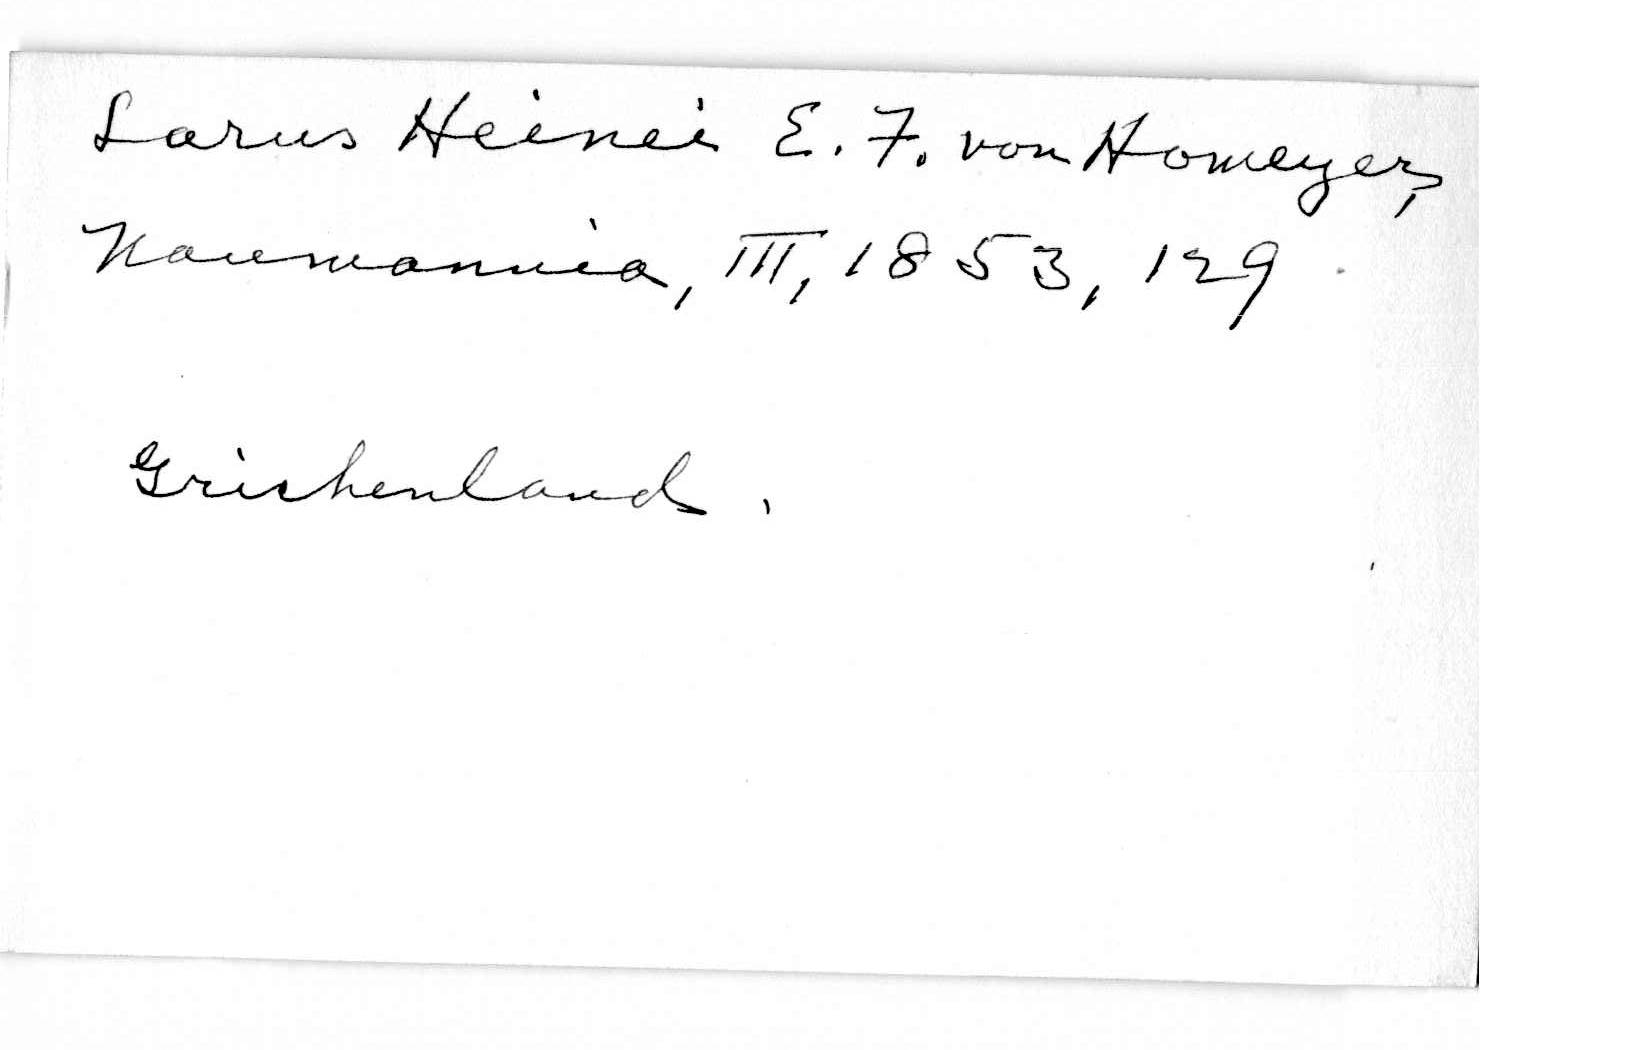 Larus Heinei E. F. von Homeyer,
Naumannia, III, 1853, 129.
Grichenland.